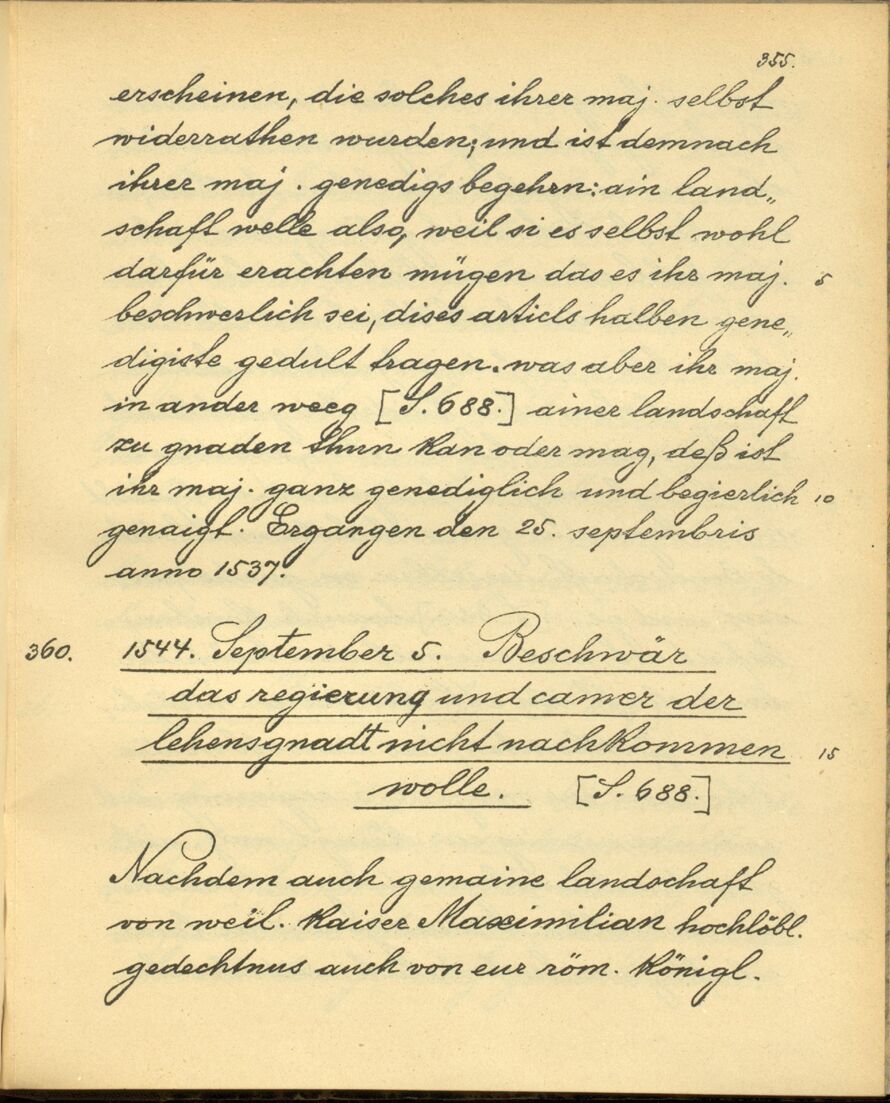 355.
erscheinen, die solches ihrer maj. selbst
widerrathen wurden; und ist demnach
ihrer maj. genedigs begehrn: ain land„
schaft welle also, weil si es selbst wohl
darfür erachten mügen das es ihr maj. 5
beschwerlich sei, dises articls halben gene„
digiste gedult tragen. was aber ihr maj.
in ander weeg [S. 688.] ainer landschaft
zu gnaden thun kan oder mag, deß ist
ihr maj. ganz genediglich und begierlich 10
genaigt. Ergangen den 25. septembris
anno 1537.
360. 1544. September 5. Beschwär
das regierung und camer der
lehensgnadt nicht nachkommen 15
wolle. [S. 688.]
Nachdem auch gemaine landschaft
von weil. Kaiser Maximilian hochlöbl.
gedechtnus auch von eur röm. Königl.